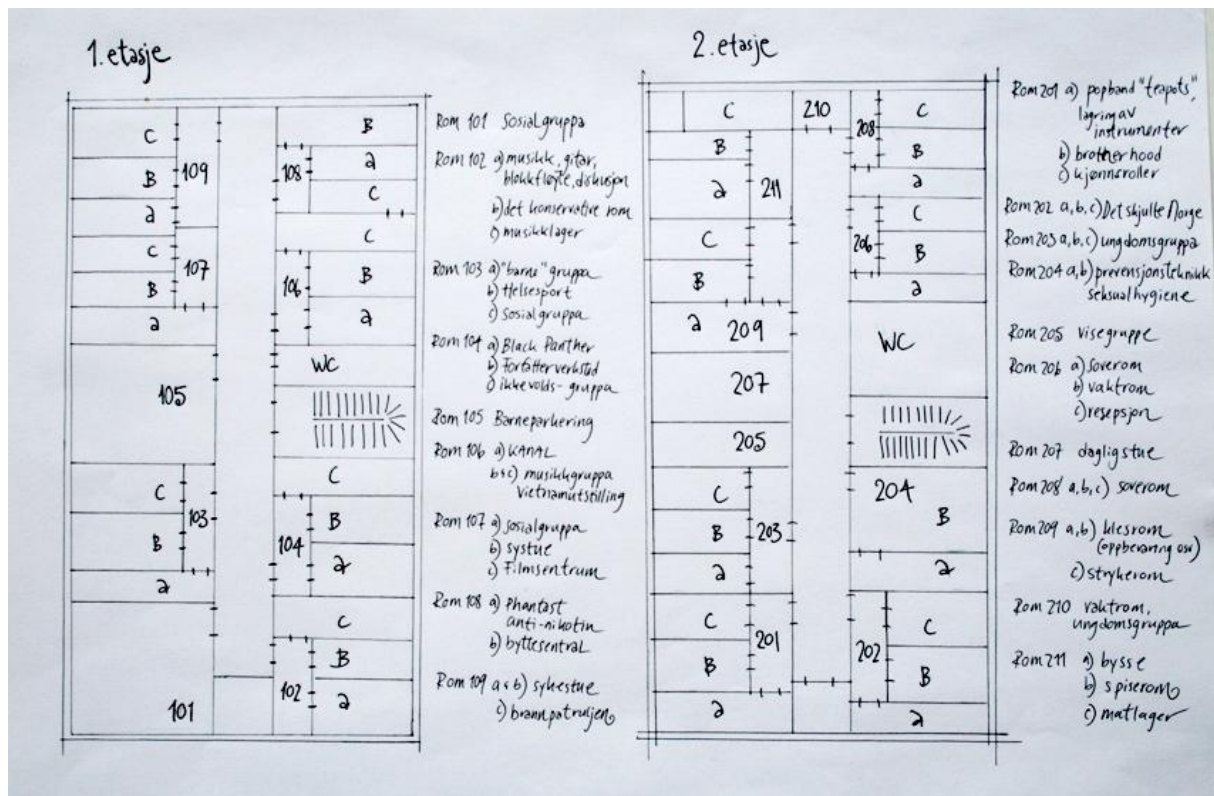 1. etasje
C
B
109
a
C
107
B
a
105
C
103
B
a
101
B
108
a
C
C
B
106
a
WC
C
B
104
a
C
B
102
a
Rom 101 Sosialgruppa
Rom 102 a) musikk, gitar,
blokkfløyte, diskusjon
b) det konservative rom
c) musikklager
Rom 103 a) "barne" gruppa
b) Helsesport
c) Sosialgruppa
Rom 104 a) Black Panther
b) Forfatterverksted
c) ikkevolds-gruppa
Rom 105 Barneparkering
Rom 106 a) KANAL
b&c) musikkgruppa
Vietnamutstilling
Rom 107 a) Sosialgruppa
b) systue
c) Filmsentrum
Rom 108 a) Phantast
anti-nikotin
b) byttesentral
Rom 109 a & b) sykestue
c) brannpatruljen
2. etasje
C
210
B
a
211
C
B
a
209
207
205
C
B
203
a
C
201
B
a
C
208
B
a
C
206
B
a
WC
204
B
a
C
202
B
a
Rom 201 a) popband "teapots",
lagring av
instrumenter
b) brotherhood
c) kjønnsroller
Rom 202 a, b, c) Det skjulte Norge
Rom 203 a, b, c) ungdomsgruppa
Rom 204 a, b) prevensjonsteknikk
seksualhygiene
Rom 205 visegruppe
Rom 206 a) soverom
b) vaktrom
c) resepsjon
Rom 207 dagligstue
Rom 208 a, b, c) soverom
Rom 209 a, b) klesrom
(oppbevaring osv)
c) strykerom
Rom 210 vaktrom,
ungdomsgruppa
Rom 211 a) bysse
b) spiserom
c) matlager